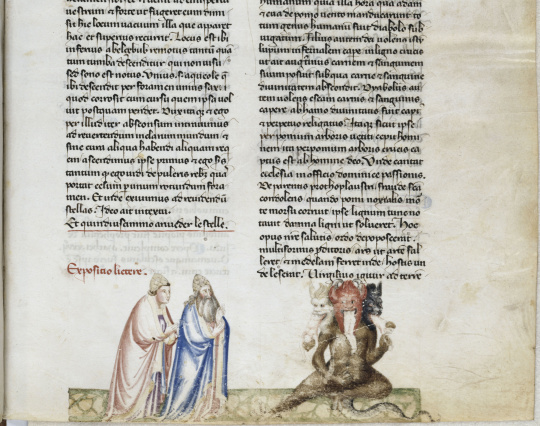 sic hic locum uacuum illa que apparet
hac et supernis recurrit. Locus est ibi
inferius a belçebub remotus tantum quan
tum tumba descendit qui non uisu
sed sono est notus. Vnius
ibi descendit per foramen unius saxi
quod corrosit cum cursu quem ipse uol
uit postquam pender. Dux itaque et ego
per illud iter absconsum intrauimus
ad reuertendum in clarum mundum et
sine cura habendi aliquam requi
em ascendimus ipse primus et ego
tantum de pulcris rebus
portat celum per unum rotundum fora
men. Et inde exiuimus ad reuidendum
stellas. Ideo ait in textu.
Et quindi uscimmo a riueder le stelle.
Expositio lictere.
humanum quia illa hora qua adam
et eua de pomo uetito manducauerunt to
tum genus humanum fuit diabolo sub
iugatum. Filius autem dei uolens istum
lupum infernalem capere in ligno crucis
ut ait augustinus carnem et sanguinem
suam posuit sub qua carne et sanguine
diuinitatem abscondit. Dyabolus au
tem uolens escam carnis et sanguinis
capere ab hamo diuinitatis fuit captus
et perpetuo religatus. Itaque sicut ipse
per pomum arboris uetiti cepit homi
nem ita per pomum arboris crucis ca
ptus est ab homine deo. Vnde cantat
ecclesia in officio dominice passionis.
De parentis prothoplausti fraude
condolens quando pomi noxialis mor
te morsu coruit ipse lignum tunc no
tauit damna ligni ut solueret. Hoc
opus nostre salutis ordo depoposcerat
multiformis proditoris ars ut arte fal
leret et medelam ferret inde hostis un
de leserat. Virgilius igitur ad terre